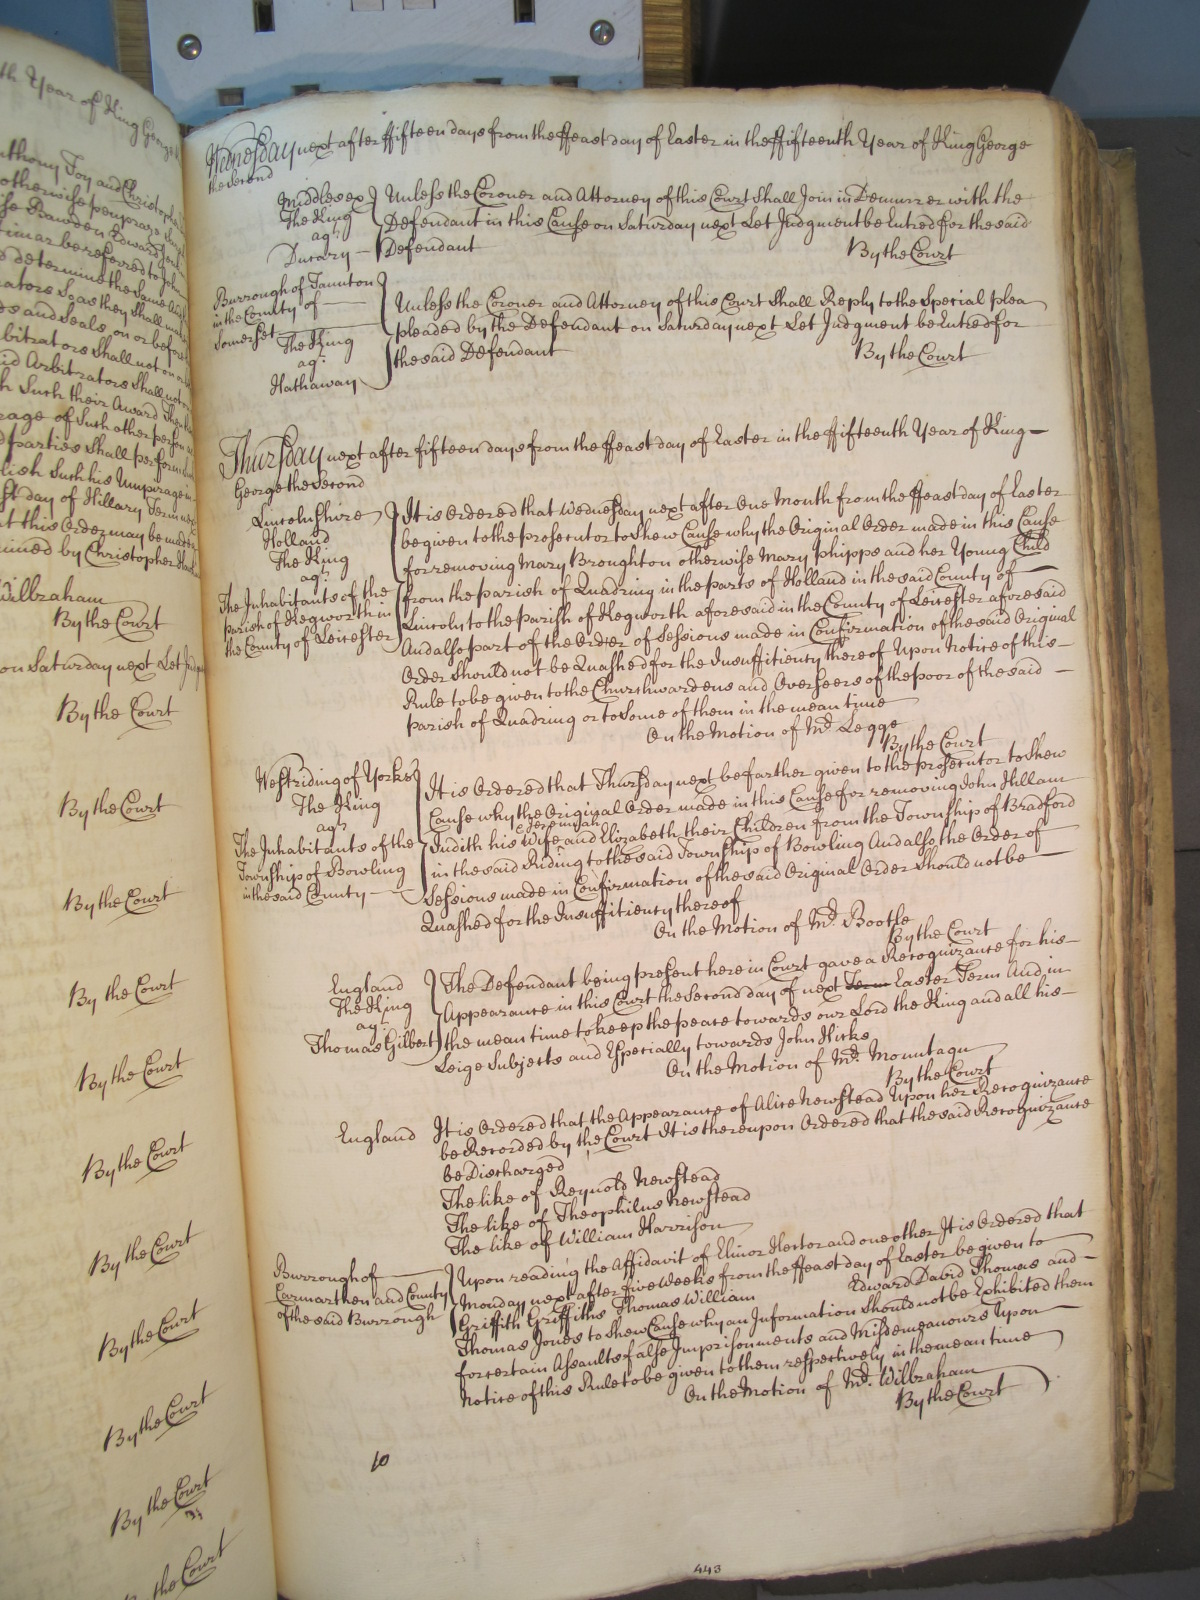 th Year of King George
nthony Foy and Christoph
otherwise
se Bawden Edward
be referred to John
d determine the same
rators So as they Shall
ds and Seals on or before
bitrators Shall not on or
id Arbitrators Shall not
h Such their Award Then
rage of Such other person
d parties Shall perform
lish Such his Umpirage
st day of Hillary Term next
at this Order may be made
ined by Christopher
Wilbraham
By the Court
on Saturday next Let
By the Court
By the Court
By the Court
By the Court
By the Court
By the Court
By the Court
By the Court
By the Court
By the Court
the Court
Wednesday next after ffifteen days from the ffeast day of Easter in the ffifteenth Year of King George
the Second
Middlesex Unless the Coroner and Attorney of this Court Shall Join in Demurrer with the
The King Defendant in this Cause on Saturday next Let Judgment be Entred for the said
agt
Ducary Defendant By the Court
Burrough of Taunton
in the County of Unless the Coroner and Attorney of this Court Shall Reply to the Special plea
Somerset pleaded by the Defendant on Saturday next Let Judgment be Entred for
The King the said Defendant By the Court
agt
Hathaway
Thursday next after fifteen days from the ffeast day of Easter in the ffifteenth Year of King
George the Second
Lincolnshire It is Ordered that Wednesday next after One Month from the ffeast day of Easter
Holland be given to the prosecutor to shew Cause why the Original Order made in this Cause
The King for removing Mary Broughton otherwise Mary Phipps and her Young Child
agt
The Inhabitants of the from the parish of Quadring in the parts of Holland in the said County of
parish of Kegworth in Lincoln to the parish of Kegworth aforesaid in the County of Leicester aforesaid
the County of Leicester And also part of the Order of Sessions made in Confirmation of the said Original
Order should not be Quashed for the Insufficiency thereof Upon Notice of this
Rule to be given to the Churchwardens and Overseers of the poor of the said
parish of Quadring or to Some of them in the mean time
On the Motion of Mr. Legge
By the Court
Westriding of Yorke It is Ordered that Thursday next be farther given to the prosecutor to shew
The King Cause why the Original Order made in this Cause for removing John Hillam
agt Jeremiah
The Inhabitants of the Judith his Wife and Elizabeth their Children from the Township of Bradford
Township of Bowling in the said Riding to the said Township of Bowling And also the Order of
in the said County Sessions made in Confirmation of the said Original Order should not be
Quashed for the Insufficiency thereof
On the Motion of Mr. Bootle
By the Court
England The Defendant being present here in Court gave a Recognizance for his
The King Appearance in this Court the Second day of next Term Easter Term And in
agt
Thomas Gilbert the mean time to keep the peace towards our Lord the King and all his
Leige Subjects and Especially towards John Hicks
On the Motion of Mr. Mountagu
By the Court
England It is Ordered that the Appearance of Alice Newstead Upon her Recognizance
be Recorded by the Court It is thereupon Ordered that the said Recognizance
be Discharged
The like of Reynold Newstead
The like of Theophilus Newstead
The like of William Harrison
Burrough of Upon reading the Affidavit of Elinor Hector and one other It is Ordered that
Carmarthen and County Monday next after five Weeks from the ffeast day of Easter be given to
of the said Burrough Griffith Griffiths Thomas William Edward David Thomas and
Thomas Jones to shew Cause why an Information should not be Exhibited them
for certain Assaults false Imprisonments and Misdemeanours Upon
Notice of this Rule to be given to them respectively in the mean time
On the Motion of Mr. Wilbraham
By the Court
10
443